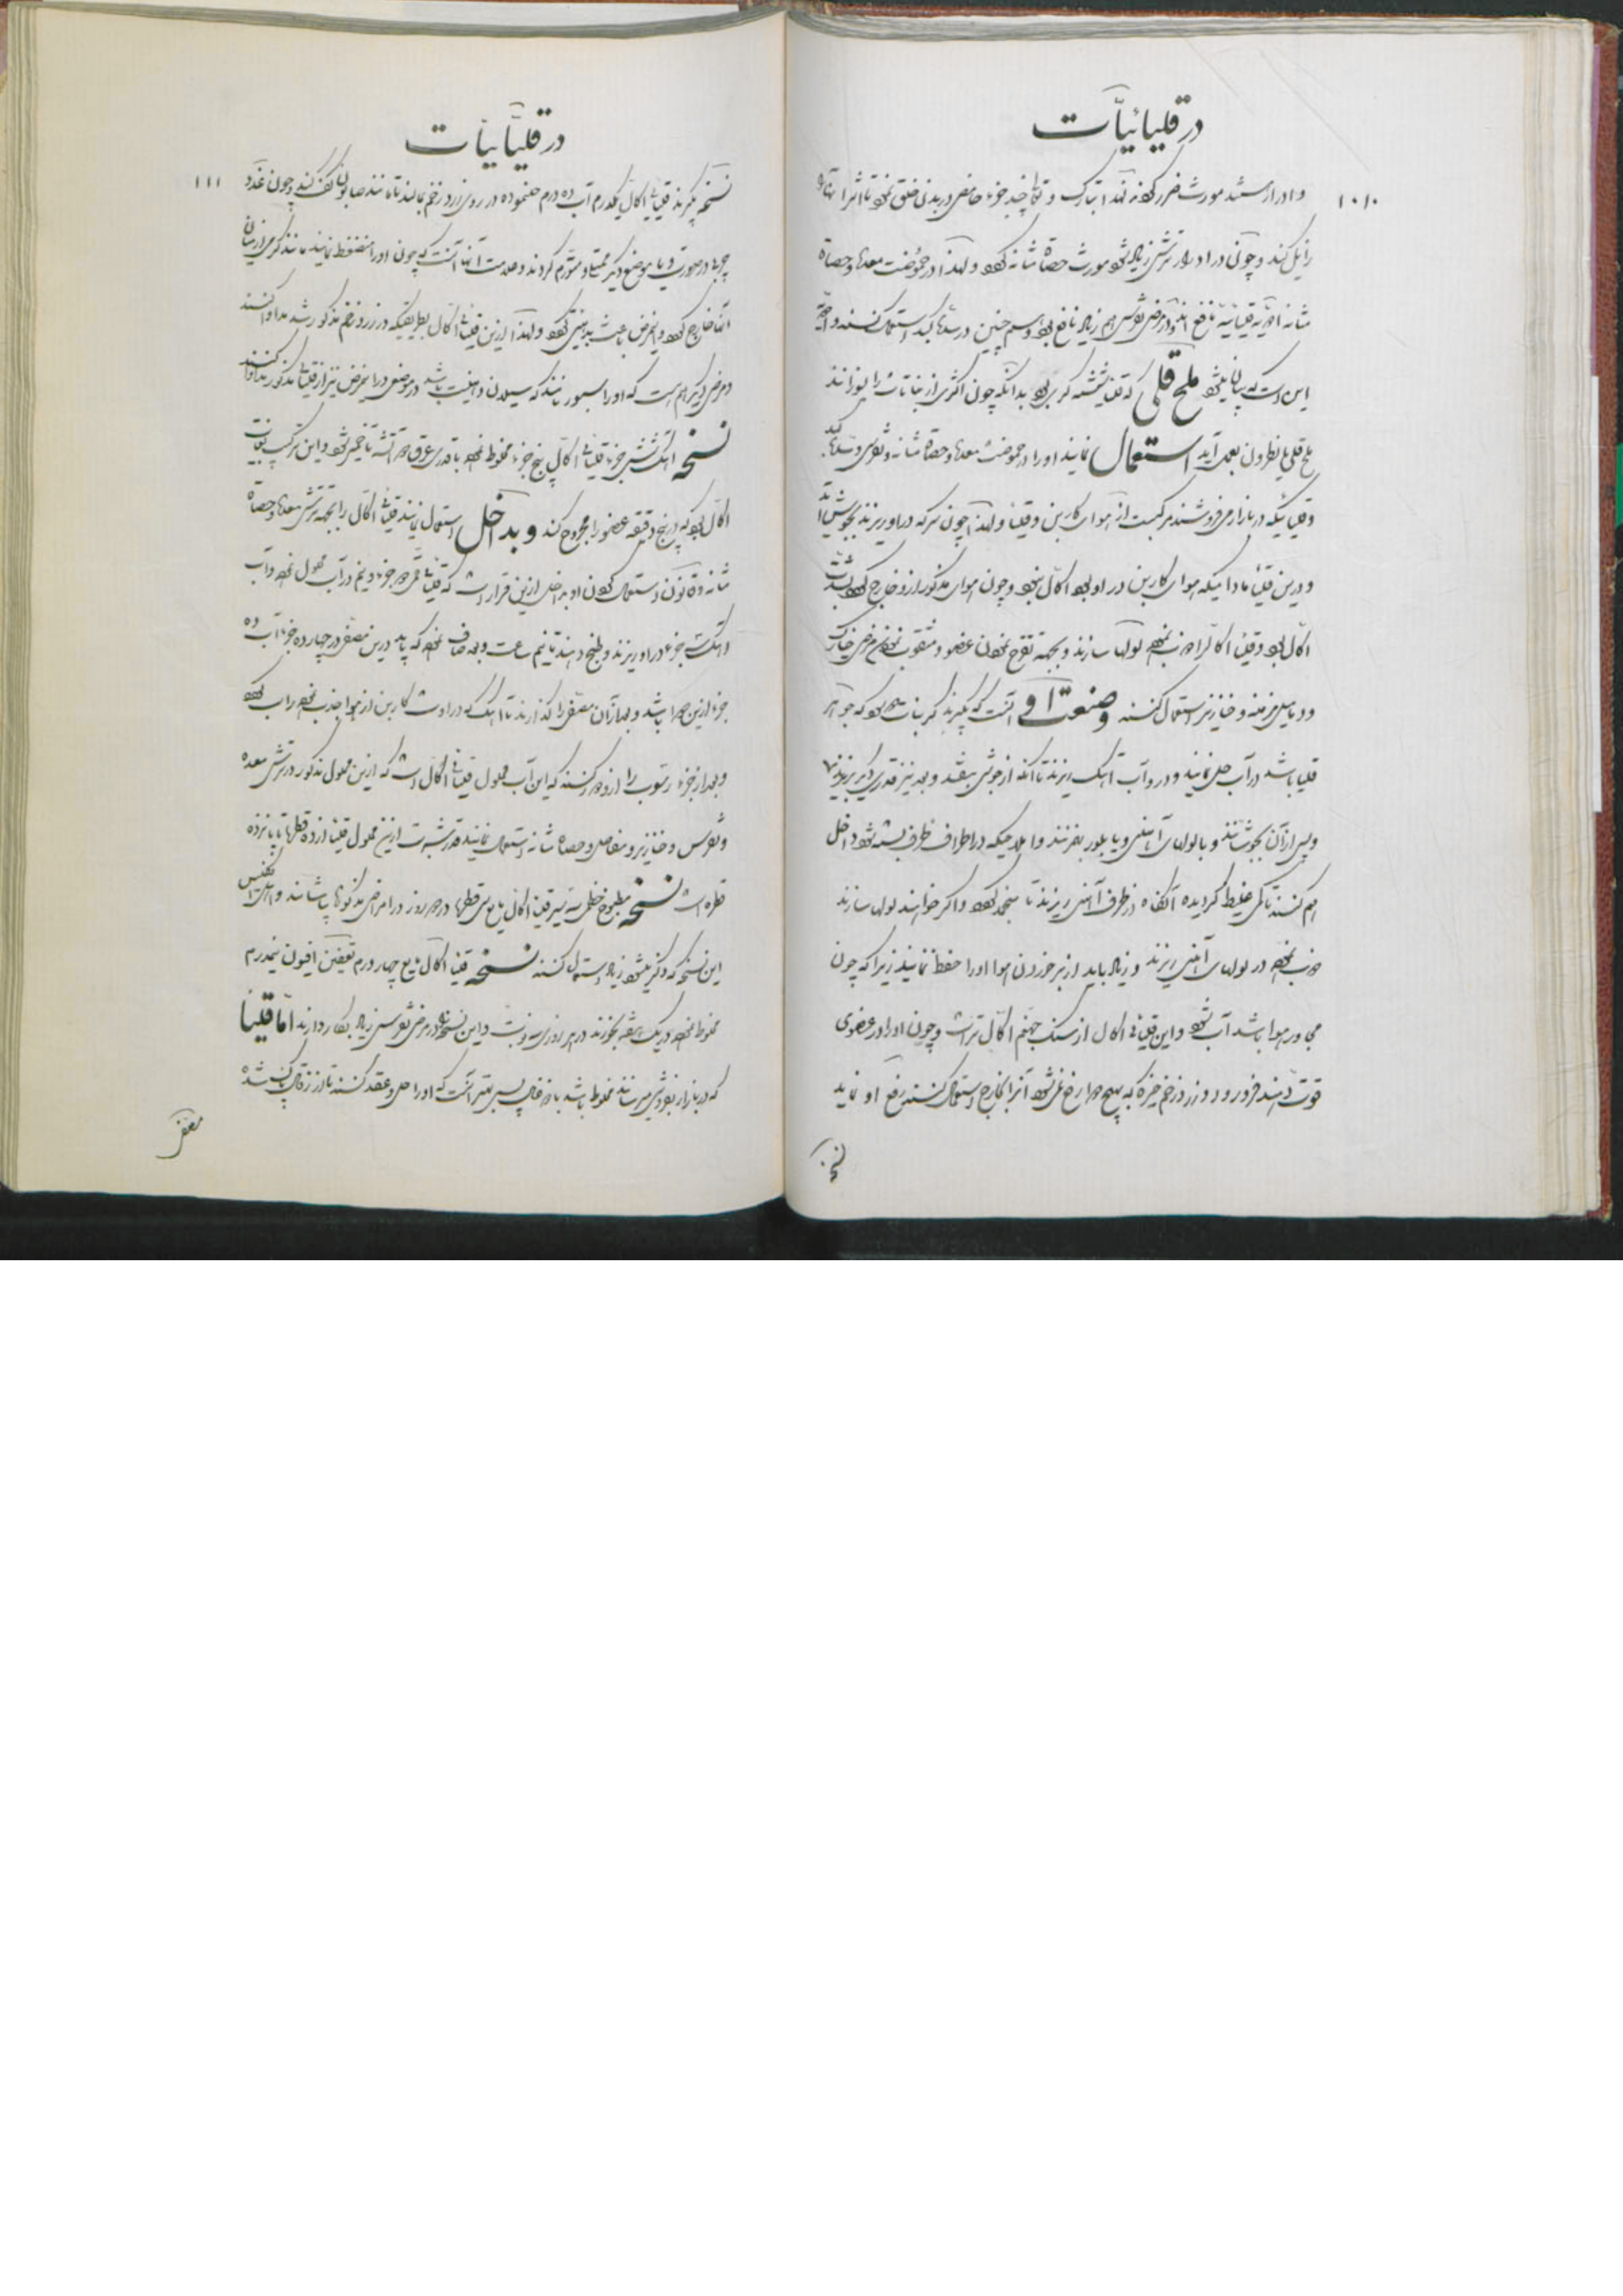 در قلیائیات
۱۰۱۰
و ادرار شدید مورث ضرر
زایل کند و چون در ادرار ترشی زیاد شود مورث حصاة مثانه گردد و لهذا در حموضت معده و حصاة
مثانه ادویه قلیائیه نافع اند و در مرض نقرس هم زیاد نافع بود و همچنین در سدهای کبد استعمال کنند و ادویه
این است که بیان میشود ملح قلی که قلیا شیشه گری بود بدانکه چون اکثری از نباتات را بسوزانند
ملح قلی یا نطرون بعمل آید استعمال نمایند او را در حموضت معده و حصاة مثانه و نقرس و سدهای کبد
و قلیائیکه در بازار میفروشند مرکبست از هوای کاربن و قلیا و لهذا چون سرکه در او ریزند بجوش آید
و درین قلیا مادامیکه هوای کاربن در او بود اکال نبود و چون هوای مذکور ازو خارج گردد بشدت
اکال بود و قلیا اکال را ذوب نموده لولها سازند و بجهة تقرح نمودن عضو و مثقوب نمودن مرض خیارک
و دمامیل مزمنه و خنازیر استعمال کنند وصنعت او آنست که بگیرند کربنات بود که جوهر
قلیا باشد در آب حل نمایند و در او آب آهک ریزند تا آنکه از جوش بیفتد و بعد نیز قدری دیگر بریزند
و پس از آن بجوشانند و با لولهای آهنی و یا بلور بهم زنند و املاحیکه در اطراف ظرف بسته شود داخل
هم کنند تا کمی غلیظ گردیده آنگاه در ظرف آهنی ریزند تا منجمد گردد و اگر خواهند لولها سازند
ذوب نموده در لولهای آهنی ریزند و زیاد باید از بر خوردن هوا او را حفظ نمایند زیرا که چون
مجاور هوا باشد آب شود و این قلیای اکال از سنک جهنم اکال تر است و چون او را در عضوی
قوت دهند فرو رود و زرد زخم خیره که بهیچ دوا رفع نمیشود آنرا بخارج استعمال کنند رفع او نماید
نسخه
در قلیائیات
۱۱۱
نسخه بگیرند قلیای اکال یکدرم آب ده درم حل نموده در روی زرد زخم بمالند تا مانند صابون کف کند و چون غدد
چربها در صورت و یا موضع دیگر ممتلی و متورم گردند و علامت آنها آنست که چون او را منضغط نمایند مانند کرمی از میان
آنها خارج گردد و این مرض باعث بدبینی گردد و لهذا ازین قلیای اکال بطریقیکه در زرد زخم مذکور شد مداوا کنند
و مرض دیگر هم هست که او را نامند که سیلان در موضعی در این مرض نیز از قلیای مذکور مداوا کنند
نسخه آهک شش جزء قلیای اکال پنج جزء مخلوط نموده با قدری عرق دو آتشه تا خمیر شود و این ترکیب بغایت
اکال بود که در پنج دقیقه عضو را مجروح کند و بداخل استعمال نمایند قلیای اکال را بجهة ترشی معده و حصاة
مثانه و قانون استعمال کردن او بداخل ازین قرار است که قلیای جزء و نیم در آب محلول نموده و آب
آهک جزء در او ریزند و طبخ دهند تا نیم ساعت و بعد صاف نموده که باید درین مصفی در چهارده جزء آب ده
جزء ازین دوا باشد و بعد از آن مصفی را گذارند تا آهک که در اوست کاربن از هوا جذب نموده راسب گردد
و بعد از جزء رسوب را ازو دور کنند که این آب محلول قلیای اکال است که ازین محلول مذکور در ترشی معده
و نقرس و خنازیر و مفاصل و حصاة مثانه استعمال نمایند قدر شربت ازین محلول قلیا از ده قطره تا پانزده
قطره است نسخه مطبوخ خطمی سه سیر قلیا اکال مایع سی قطره در دو روز در امراض مذکوره بیاشامند و اهل انگلیس
این نسخه که ذکر میشود زیاد استعمال کنند نسخه قلیا اکال مایع چهار درم تعفین افیون نیمدرم
مخلوط نموده در یک دفعه بخورند در هر روزی سه نوبت و این نسخه را در مرض نقرس زیاد بکار دارند اما قلیا
که در بازار بفروش میرسانند مخلوط باشد با زخاف پس بهتر آنست که او را حل و عقد کنند تا از زخاف پاک شده
مصفی